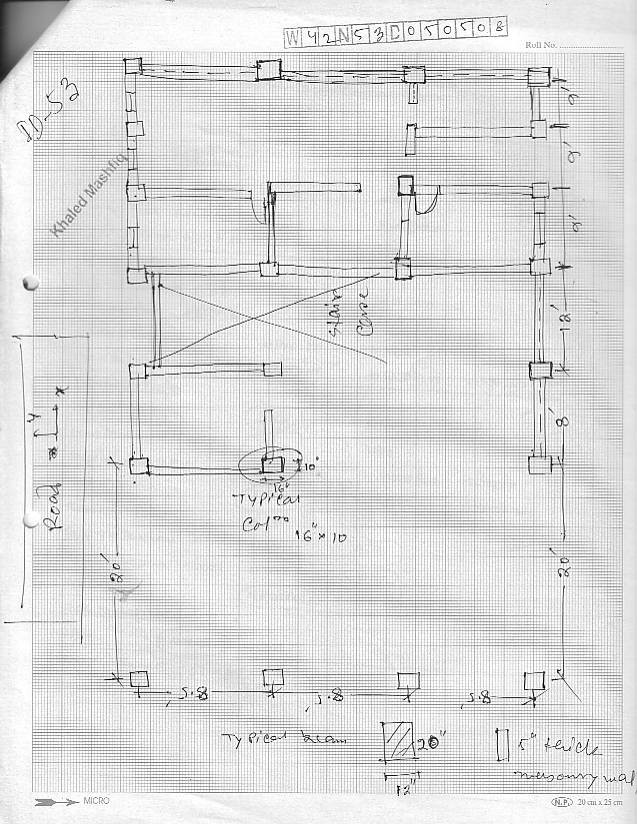 W42N53D050508
Roll No.
ID-53
Khaled Mashfiq
9'
9'
9'
Stair
Case
12'
Road
Y
x
8'
10"
16"
Typical
Col
16" x 10
20'
20'
Typical beam
20"
12"
5" thick
masonry wal
MICRO
N.P. 20 cm x 25 cm